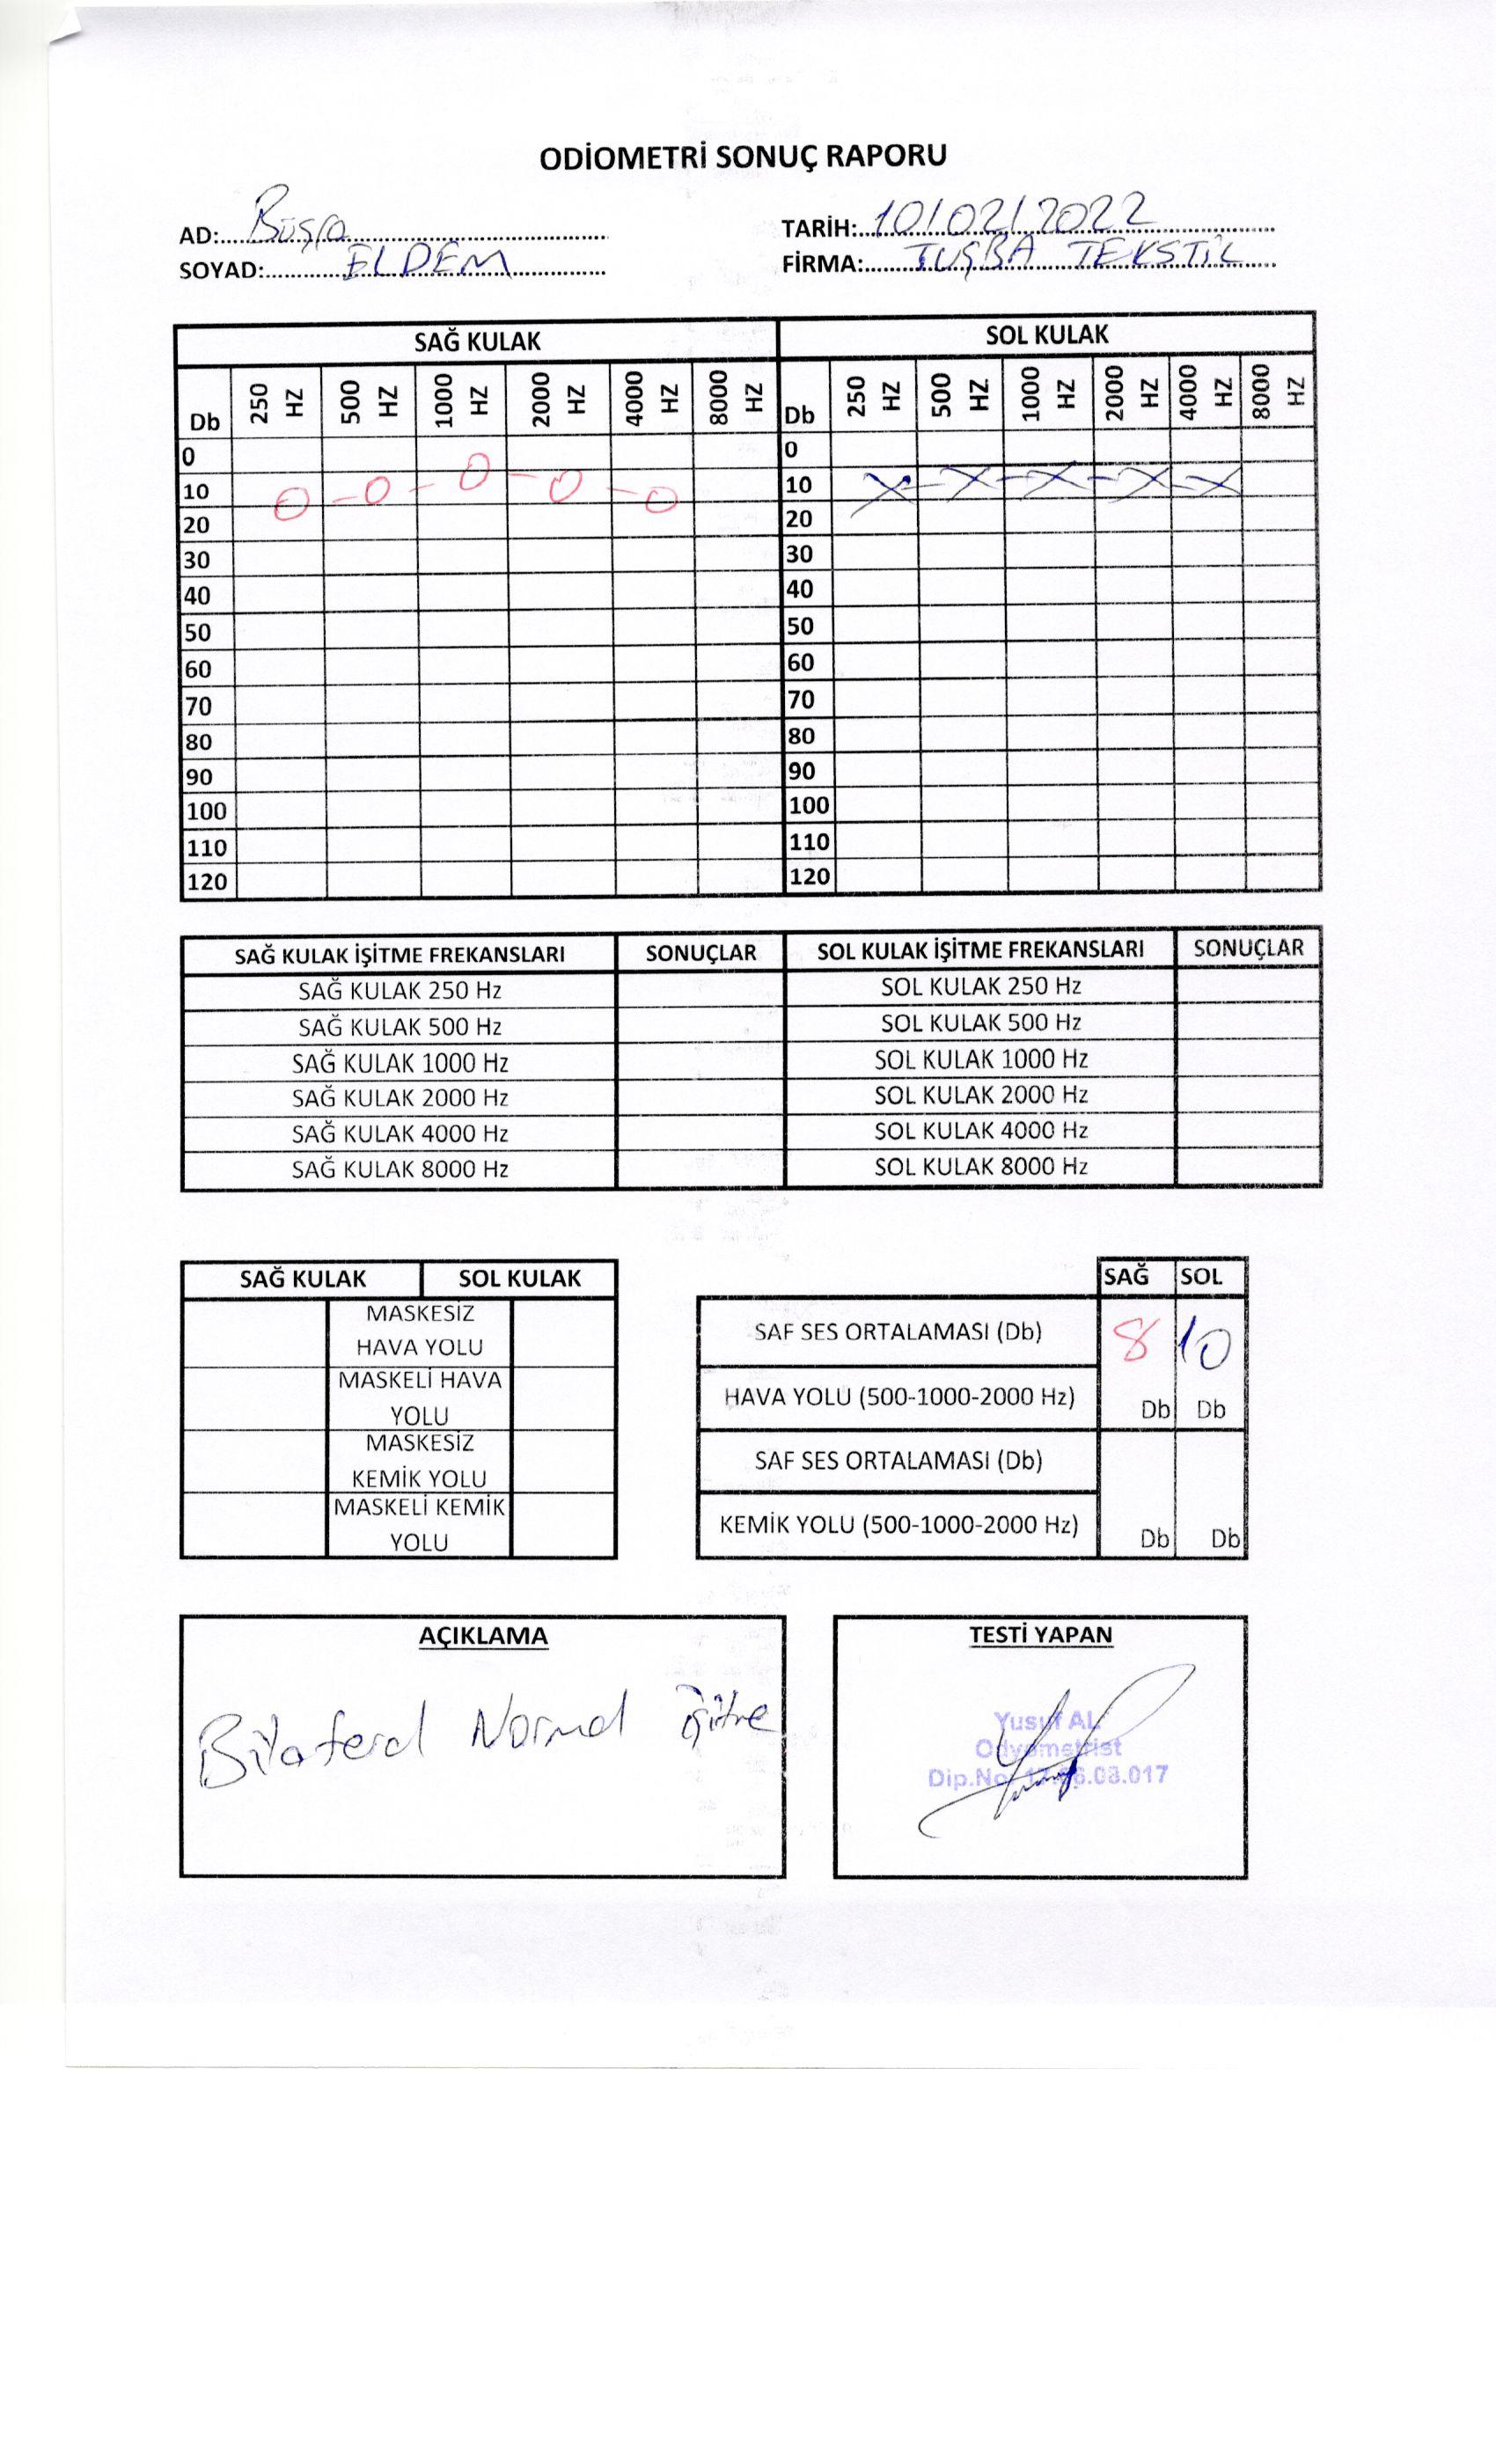 ODİOMETRİ SONUÇ RAPORU
AD: Büşra
TARİH: 10/02/2022
SOYAD: ELDEM
FİRMA: TUŞBA TEKSTİL
SAĞ KULAK SOL KULAK
Db 250 HZ 500 HZ 1000 HZ 2000 HZ 4000 HZ 8000 HZ Db 250 HZ 500 HZ 1000 HZ 2000 HZ 4000 HZ 8000 HZ
0 0
10 10
20 20
30 30
40 40
50 50
60 60
70 70
80 80
90 90
100 100
110 110
120 120
SAĞ KULAK İŞİTME FREKANSLARI SONUÇLAR SOL KULAK İŞİTME FREKANSLARI SONUÇLAR
SAĞ KULAK 250 Hz SOL KULAK 250 Hz
SAĞ KULAK 500 Hz SOL KULAK 500 Hz
SAĞ KULAK 1000 Hz SOL KULAK 1000 Hz
SAĞ KULAK 2000 Hz SOL KULAK 2000 Hz
SAĞ KULAK 4000 Hz SOL KULAK 4000 Hz
SAĞ KULAK 8000 Hz SOL KULAK 8000 Hz
SAĞ KULAK SOL KULAK
MASKESİZ
HAVA YOLU
MASKELİ HAVA
YOLU
MASKESİZ
KEMİK YOLU
MASKELİ KEMİK
YOLU
SAĞ SOL
SAF SES ORTALAMASI (Db) 8 10
HAVA YOLU (500-1000-2000 Hz) Db Db
SAF SES ORTALAMASI (Db)
KEMİK YOLU (500-1000-2000 Hz) Db Db
AÇIKLAMA
Bilateral Normal işitme
TESTİ YAPAN
Yusuf AL
Odyometrist
Dip.No: